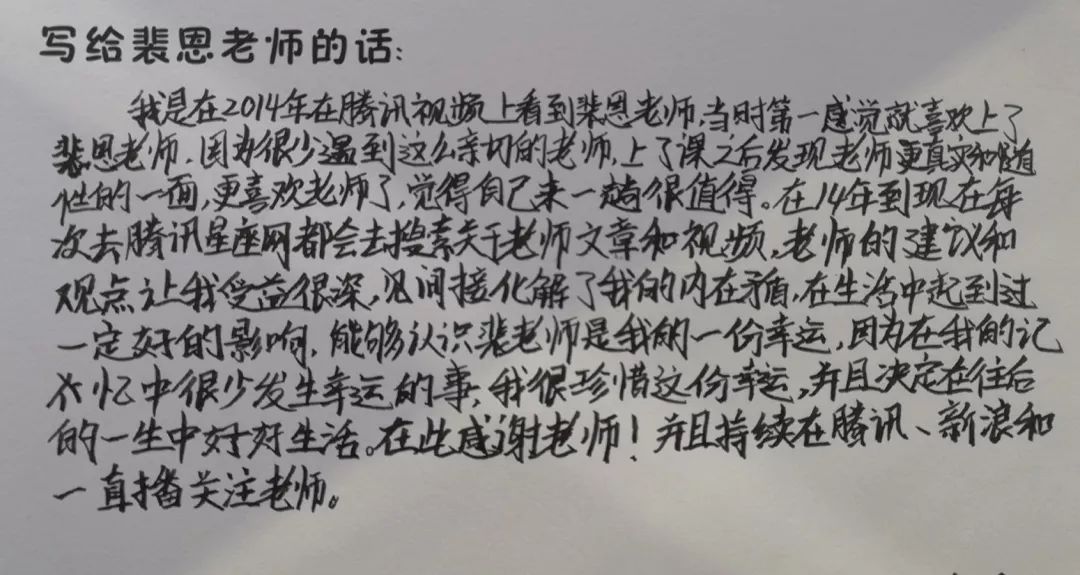 写给裴恩老师的话:
我是在2014年在腾讯视频上看到裴恩老师,当时第一感觉就喜欢上了
裴恩老师.因为很少遇到这么亲切的老师,上了课之后发现老师更真实和
性的一面,更喜欢老师了,觉得自己来一趟很值得。在14年到现在每
次去腾讯星座网都会去搜索关于老师文章和视频,老师的建议和
观点让我受益很深,见间接化解了我的内在矛盾,在生活中起到过
一定好的影响.能够认识裴老师是我的一份幸运,因为在我的记
忆中很少发生幸运的事,我很珍惜这份幸运,并且决定在往后
的一生中好好生活。在此感谢老师!并且持续在腾讯、新浪和
一直播关注老师。